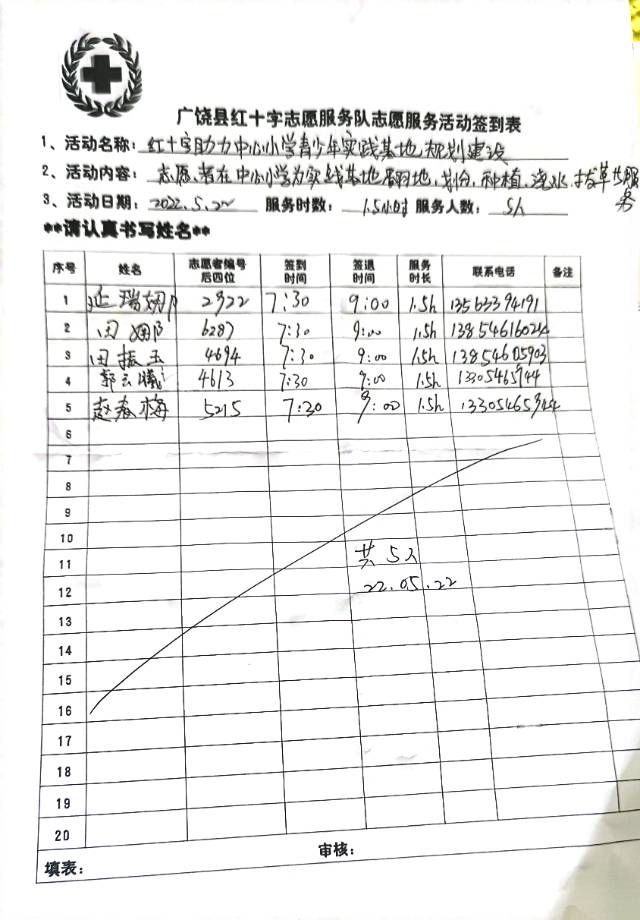 广饶县红十字志愿服务队志愿服务活动签到表
1、活动名称：红十字助力中心小学青少年实践基地规划建设
2、活动内容：志愿者在中心小学为实践基地翻地，划份，种植，浇水，拔草等服务
3、活动日期：2022.5.22 服务时数：1.5小时 服务人数：5人
**请认真书写姓名**
序号 姓名 志愿者编号后四位 签到时间 签退时间 服务时长 联系电话 备注
1 延瑞娜 2922 7:30 9:00 1.5h 13563394191
2 田娜 6287 7:30 9:00 1.5h 13854616024
3 田振玉 4694 7:30 9:00 1.5h 13854605903
4 郭云曦 4613 7:30 9:00 1.5h
5 赵春梅 5215 7:30 9:00 1.5h
6
7
8
9
10
11 共5人
12 22.05.22
13
14
15
16
17
18
19
20
填表： 审核：